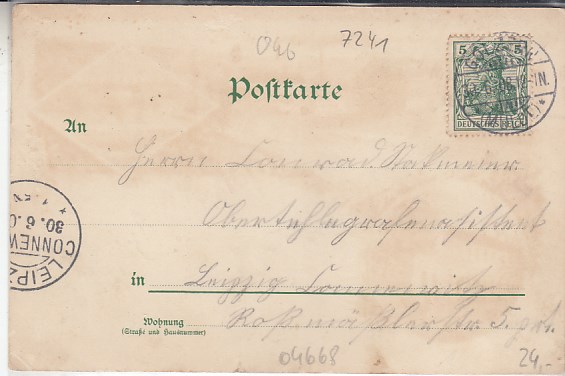 046 7241
5 5
DEUTSCHES REICH
Postkarte
An
Herrn Conrad
Obertelegrafenassistent
in Leipzig Connewitz
Wohnung
(Straße und Hausnummer)
Roßmäßlerstr. 5.
LEIPZ
CONNEW
30.6.0
04668 24,-